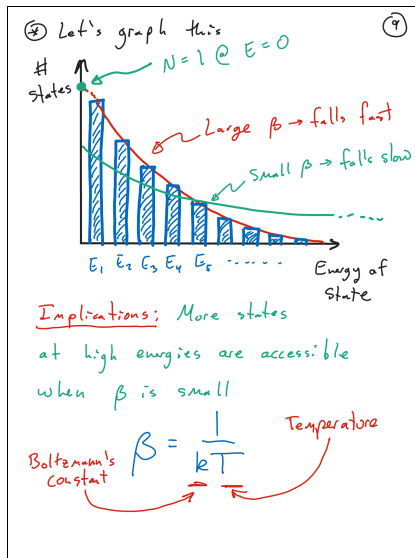 * Let's graph this
9
N = 1 @ E = 0
#
states
Large β → falls fast
Small β → falls slow
E1 E2 E3 E4 E5 ......
Energy of
State
Implications: More states
at high energies are accessible
when β is small
β = 1/kT
Temperature
Boltzmann's
constant